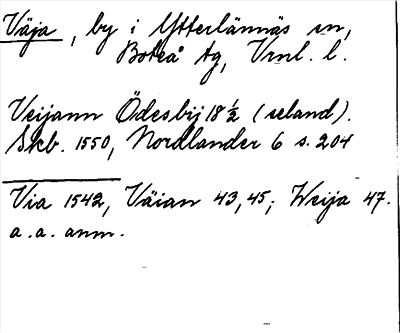 Väja, by i Ytterlännäs sn,
Boteå tg, Vrnl. l.
Veijann Ödesbij 18 ½ (seland).
Skb. 1550, Nordlander 6 s. 204
Via 1542, Väian 43, 45; Weija 47.
a. a. anm.